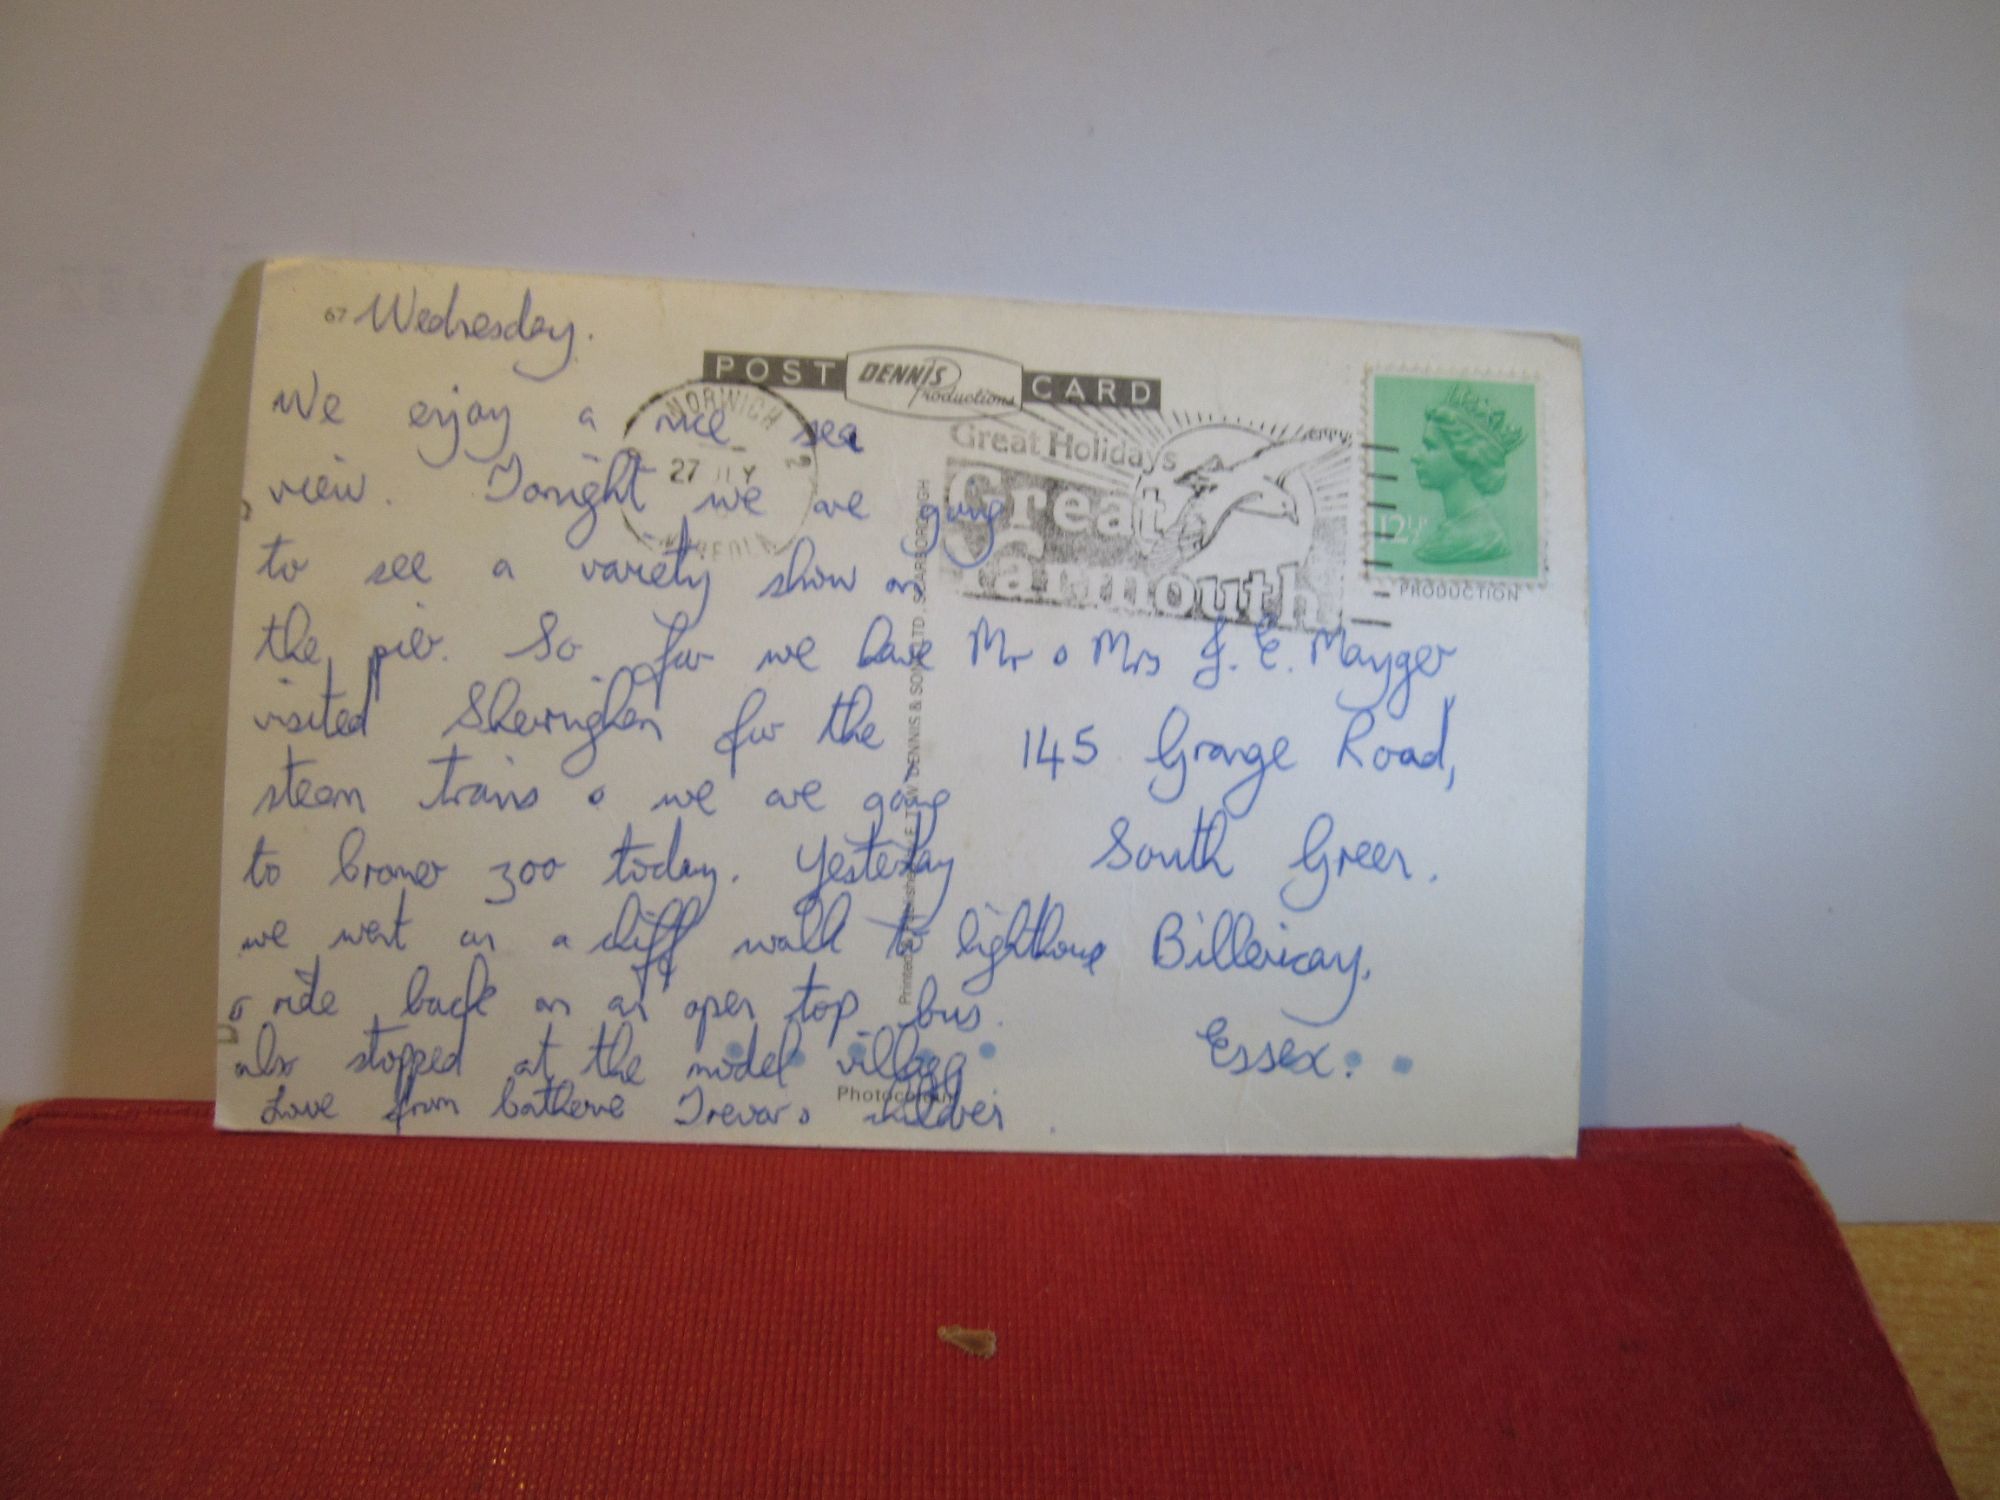 67 Wednesday.
POST DENNIS Productions CARD
We enjoy a nice sea
view. Tonight we are going
to see a variety show on
the pier. So far we have
visited Sheringham for the
steam trains & we are going
to Cromer zoo today. Yesterday
we went on a cliff walk to lighthouse
& ride back on an open top bus.
also stopped at the model village
Love from Catherine Trevor & children
NORWICH
27 JLY
NORFOLK
Great Holidays
Great
Yarmouth
12½P
PRODUCTION
Mr & Mrs J. E. Mayger
145 Grange Road,
South Green.
Billericay,
Essex.
DENNIS & SONS LTD., SCARBOROUGH
Printed